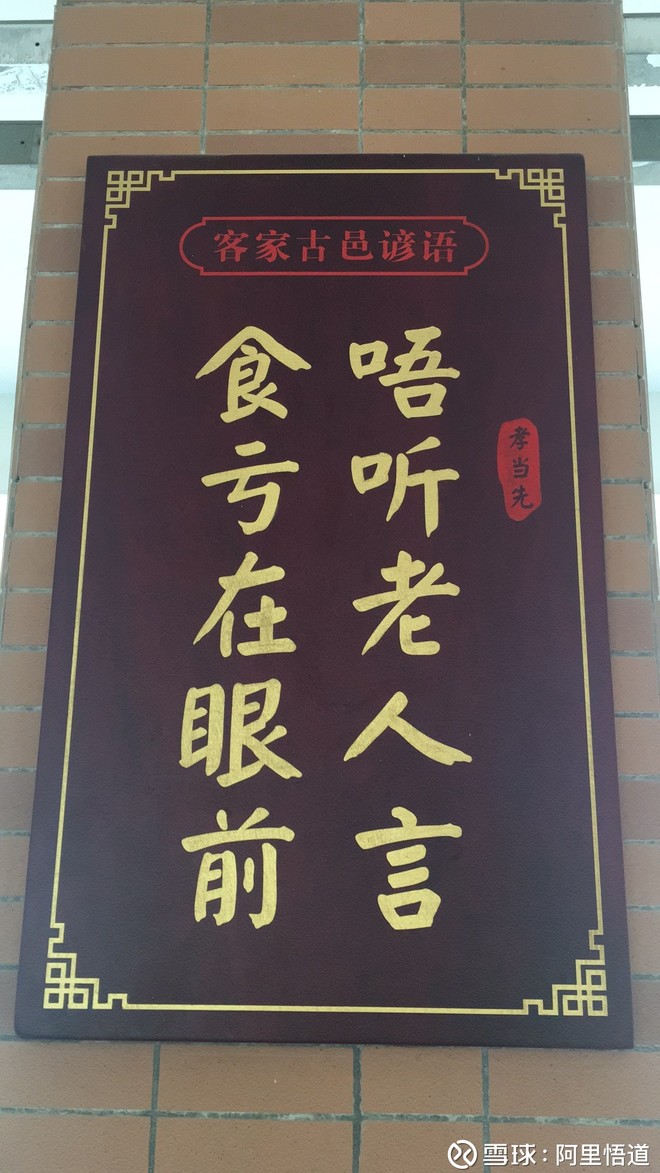 客家古邑谚语
孝当先
唔听老人言
食亏在眼前
雪球：阿里悟道